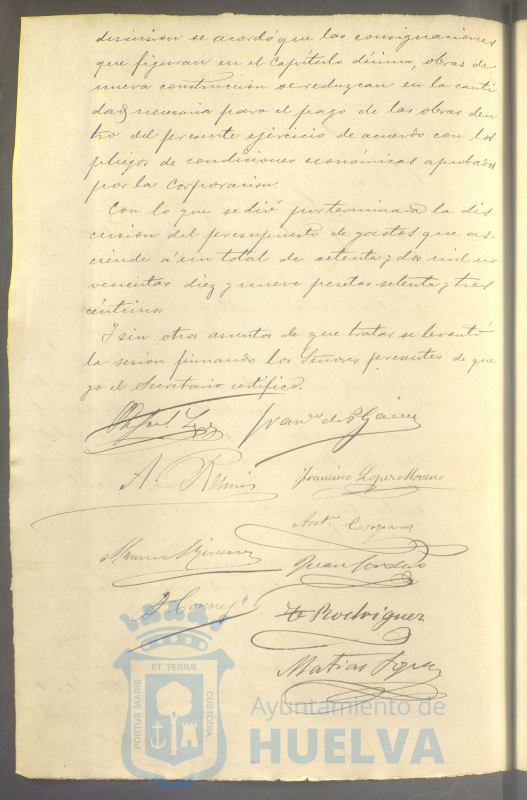 discusion se acordó que las consignaciones
que figuran en el Capítulo décimo, obras de
nueva construccion se reduzcan en la canti
dad necesaria para el pago de las obras den
tro del presente ejercicio de acuerdo con los
pliegos de condiciones económicas aprobados
por la Corporacion.
Con lo que se dió por terminada la dis
cusion del presupuesto de gastos que as-
ciende á un total de setenta y dos mil no
vecientas diez y nueve pesetas setenta y tres
céntimos
Y sin otros asuntos de que tratar se levantó
la sesion firmando los Señores presentes de que
yo el Secretario certifico.
Rafael
Franco de P
A.
Francisco Lopez Moreno
Anto
Manuel
Juan Cordero
Rodriguez
Matias Lopez
ET TERRÆ
PORTUS MARIS
CUSTODIA
Ayuntamiento de
HUELVA